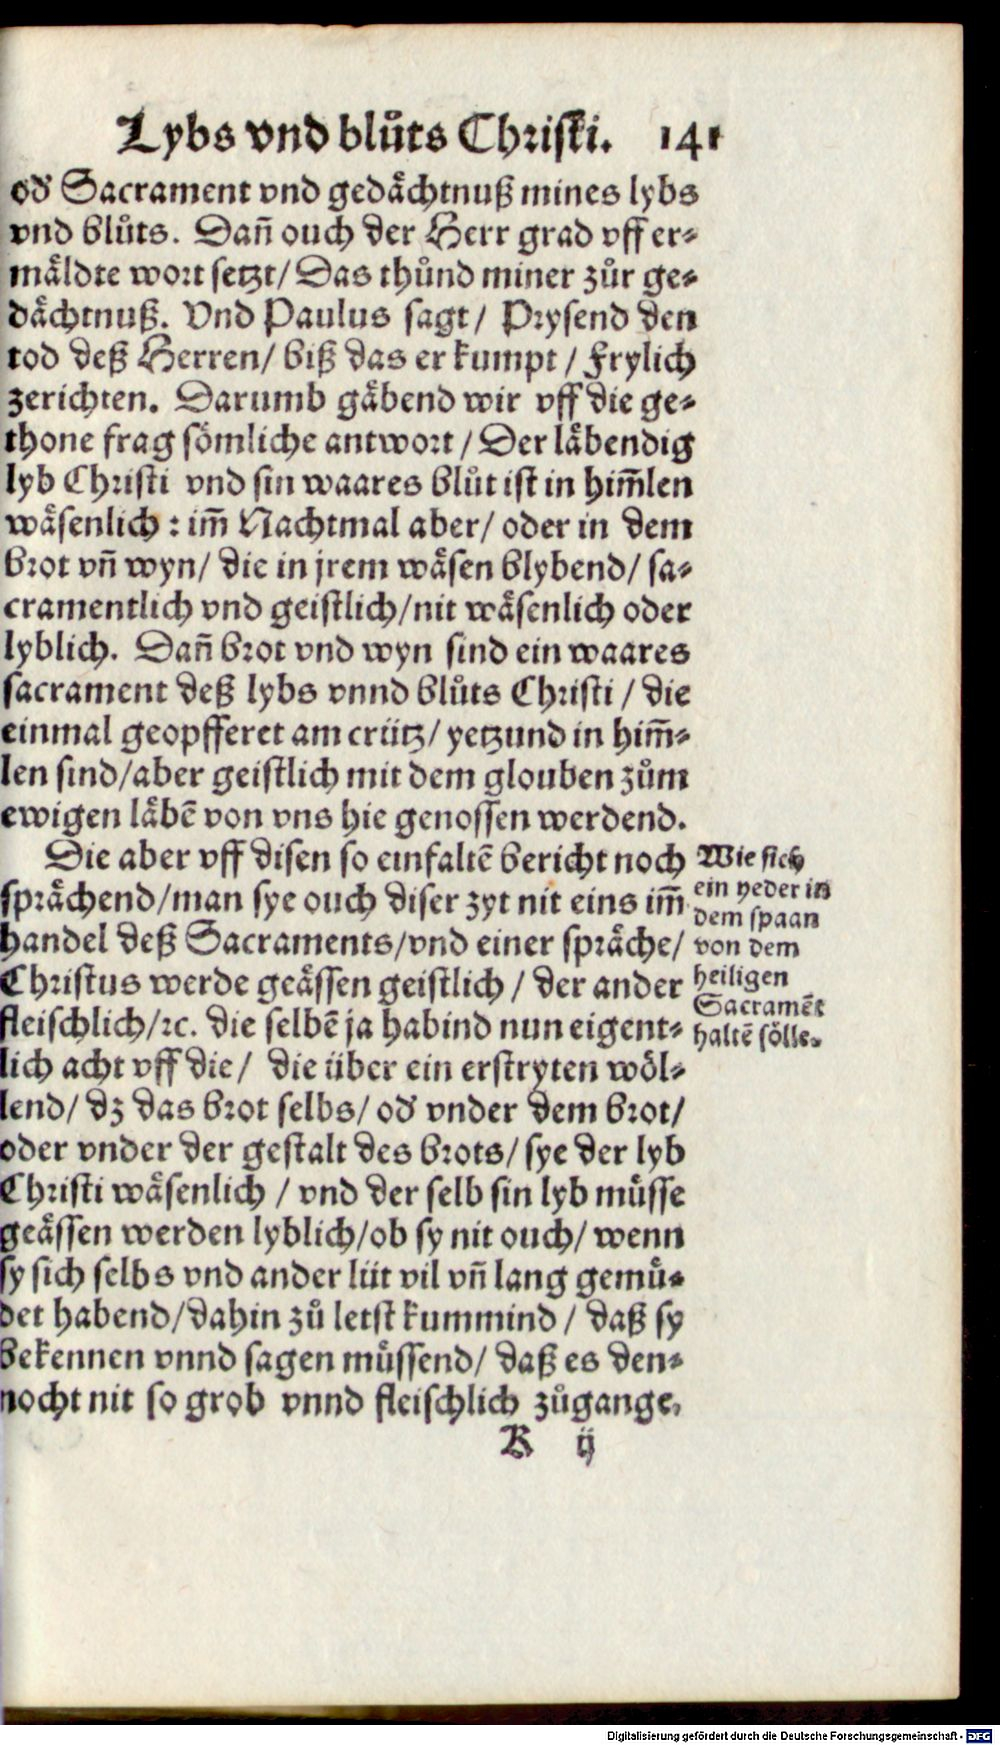 Lybs vnd blůts Christi. 141
od' Sacrament vnd gedaͤchtnuß mines lybs
vnd blůts. Dañ ouch der Herr grad vff er⸗
maͤldte wort setzt/ Das thůnd miner zůr ge⸗
daͤchtnuß. Vnd Paulus sagt/ Prysend den
tod deß Herren/ biß das er kumpt / frylich
zerichten. Darumb gaͤbend wir vff die ge⸗
thone frag soͤmliche antwort / Der laͤbendig
lyb Christi vnd sin waares blůt ist in him̃len
waͤsenlich : im̃ Nachtmal aber/ oder in dem
brot vñ wyn/ die in jrem waͤsen blybend/ sa⸗
cramentlich vnd geistlich/nit waͤsenlich oder
lyblich. Dañ brot vnd wyn sind ein waares
sacrament deß lybs vnnd blůts Christi / die
einmal geopfferet am crütz/ yetzund in him̃⸗
len sind/aber geistlich mit dem glouben zům
ewigen laͤbẽ von vns hie genossen werdend.
Die aber vff disen so einfaltẽ bericht noch
spraͤchend/man sye ouch diser zyt nit eins im̃
handel deß Sacraments/vnd einer spraͤche/
Christus werde geaͤssen geistlich / der ander
fleischlich/ꝛc. die selbẽ ja habind nun eigent⸗
lich acht vff die/ die über ein erstryten woͤl⸗
lend/ dz das brot selbs/ od' vnder dem brot/
oder vnder der gestalt des brots/ sye der lyb
Christi waͤsenlich / vnd der selb sin lyb muͤsse
geaͤssen werden lyblich/ob sy nit ouch/ wenn
sy sich selbs vnd ander lüt vil vñ lang gemuͤ⸗
det habend/dahin zů letst kummind / daß sy
bekennen vnnd sagen muͤssend/ daß es den⸗
nocht nit so grob vnnd fleischlich zůgange,
R ij
Wie sich
ein yeder in
dem spaan
von dem
heiligen
Sacramẽt
haltẽ soͤlle.
Digitalisierung gefördert durch die Deutsche Forschungsgemeinschaft - DFG